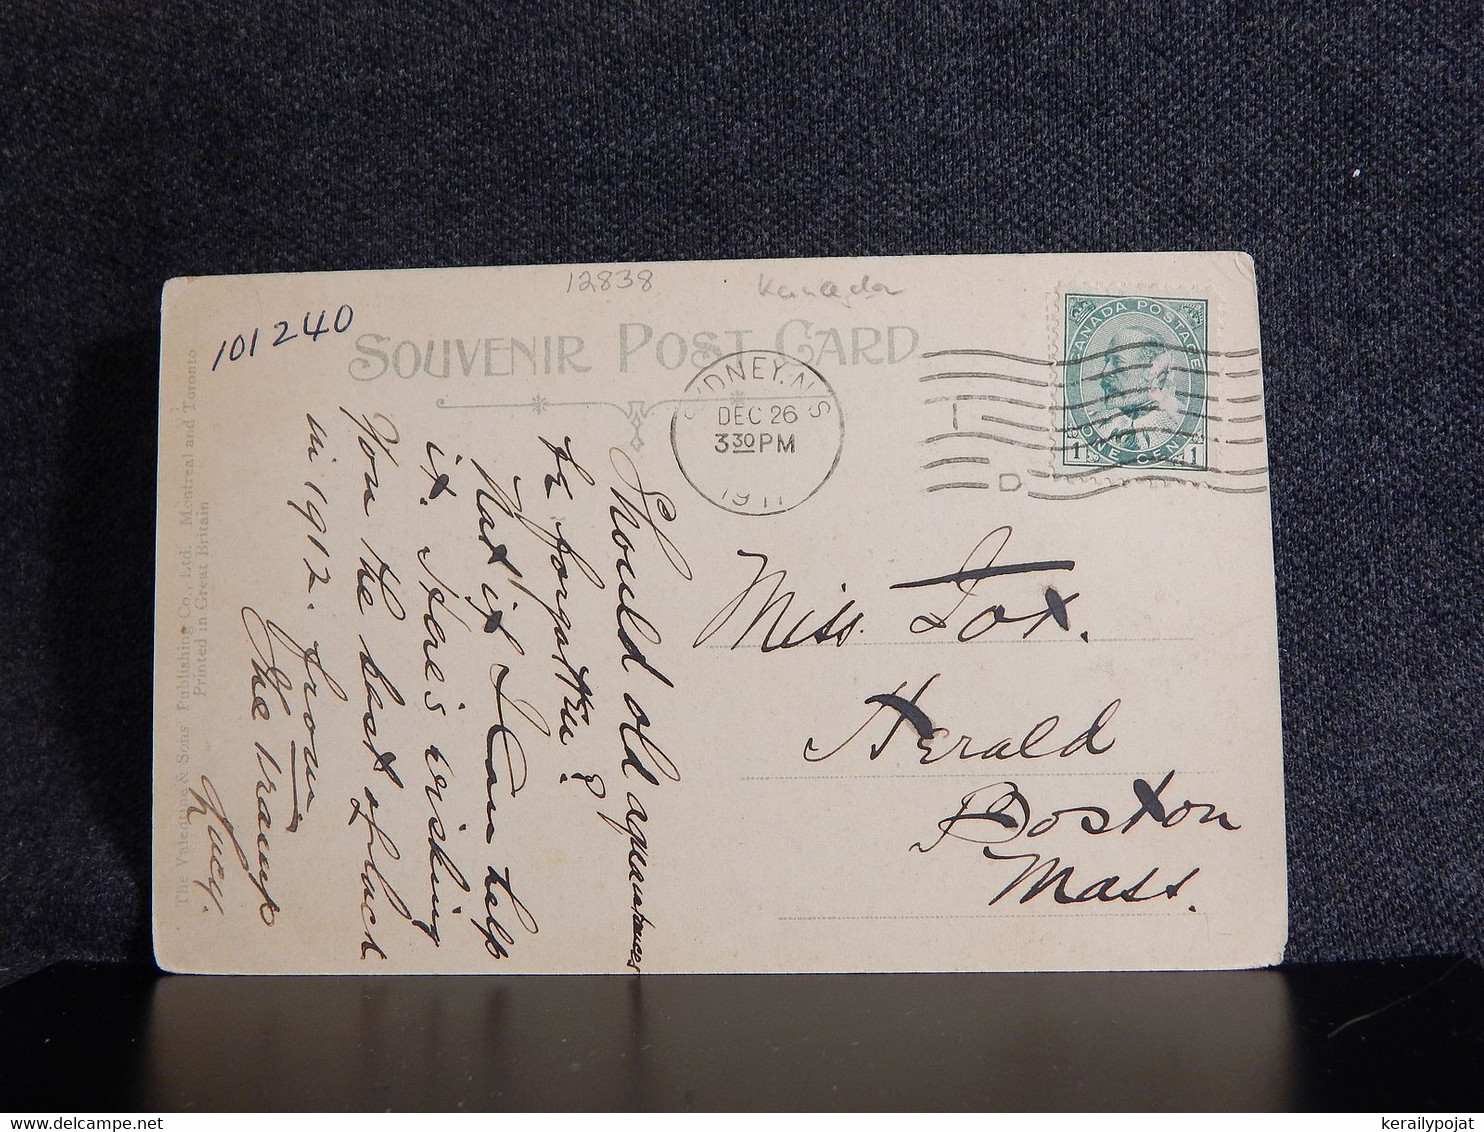 12838
Kanada
101240
SOUVENIR POST CARD
SYDNEY. N.S
DEC 26
3 30 PM
1911
CANADA POSTAGE
1 ONE CENT 1
Miss. Fox.
Herald
Boston
Mass.
Should old aquaintances
be forgotten?
Not if I can help
it. Here's wishing
You the best of luck
in 1912. from
The tramp
Lucy.
The Valentine & Sons Publishing Co., Ltd. Montreal and Toronto
Printed in Great Britain
kerailypojat
delcampe.net